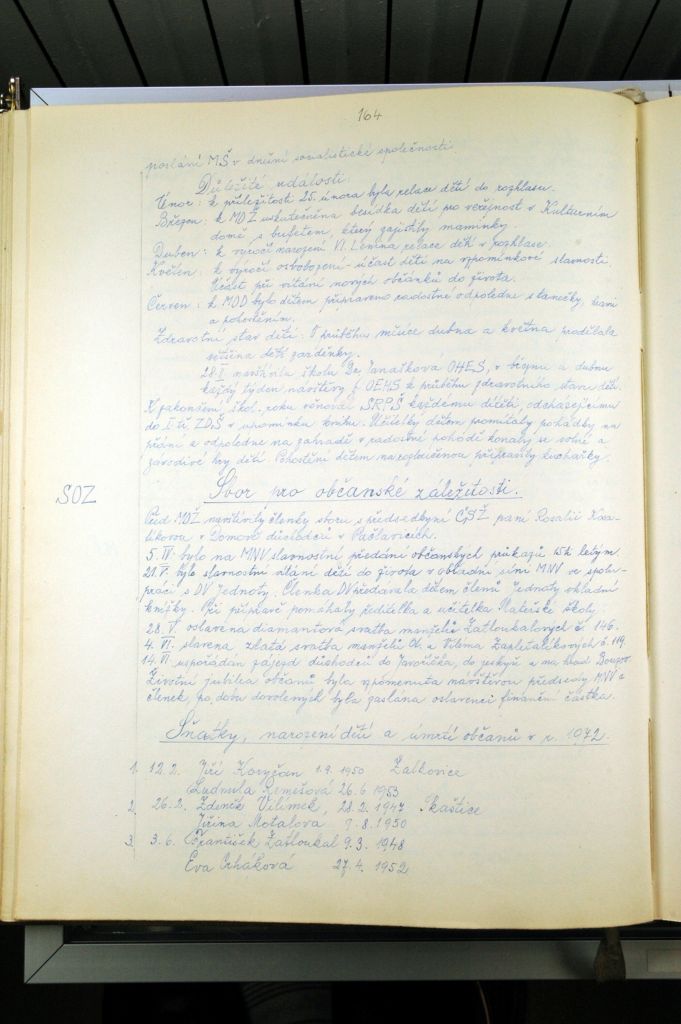 164
poslání MŠ v dnešní socialistické společnosti.
Důležité události:
Únor: k příležitosti 25. února byla relace dětí do rozhlasu.
Březen: k MDŽ uskutečněna besídka dětí pro veřejnost v Kulturním
domě s bufetem, který zajistily maminky.
Duben: k výročí narození Vl. Lenina relace dětí v rozhlase.
Květen: k výročí osvobození - účast dětí na vzpomínkové slavnosti.
Účast při vítání nových občánků do života.
Červen: k MDD bylo dětem připraveno radostné odpoledne s tanečky, hrami
a pohoštěním.
Zdravotní stav dětí: V průběhu měsíce dubna a května prodělala
většina dětí zarděnky.
28. navštívila školu Dr. Janašková OHES, v březnu a dubnu
každý týden návštěvy z OEHS k průběhu zdravotního stavu dětí.
K zakončení škol. roku věnoval SRPŠ každému dítěti, odcházejícímu
do I. tř. ZDŠ v upomínku knihu. Učitelky dětem promítaly pohádky na
přání a odpoledne na zahradě v radostné pohodě konaly se volné a
závodivé hry dětí. Pohoštění dětem na rozloučenou připravily kuchařky.
SOZ
Sbor pro občanské záležitosti.
Před MDŽ navštívily členky sboru s předsedkyní ČSŽ paní Rosalii
v Domově důchodců v Pačlavicích.
5. IV. bylo na MNV slavnostní předání občanských průkazů 15ti letým.
21. V. bylo slavnostní vítání dětí do života v obřadní síni MNV ve spolu-
práci s DV Jednoty. Členka DV předávala dětem členů Jednoty vkladní
knížky. Při přípravě pomáhaly ředitelka a učitelka Mateřské školy.
28. V. oslavena diamantová svatba manželů Zatloukalových č. 146.
4. VI. slavena zlatá svatba manželů Ol. a Viléma Zapletalíkových č. 119.
14. VI. uspořádán zájezd důchodců do Javoříčka, do jeskyň a na hrad Bouzov.
Životní jubilea občanů byla vzpomenuta návštěvou předsedy MNV a
členek, po dobu dovolených byla zaslána oslavenci finanční částka.
Sňatky, narození dětí a úmrtí občanů v r. 1972.
1. 12.2. Jiří Koryčan 1.9. 1950 Žalkovice
Ludmila Remešová 26.6. 1953
2. 26.2. Zdeněk Vilímek 28.2. 1947 Skaštice
Jiřina Motalová 7.8. 1950
3. 3.6. František Zatloukal 9.3. 1948
Eva 27.4. 1952